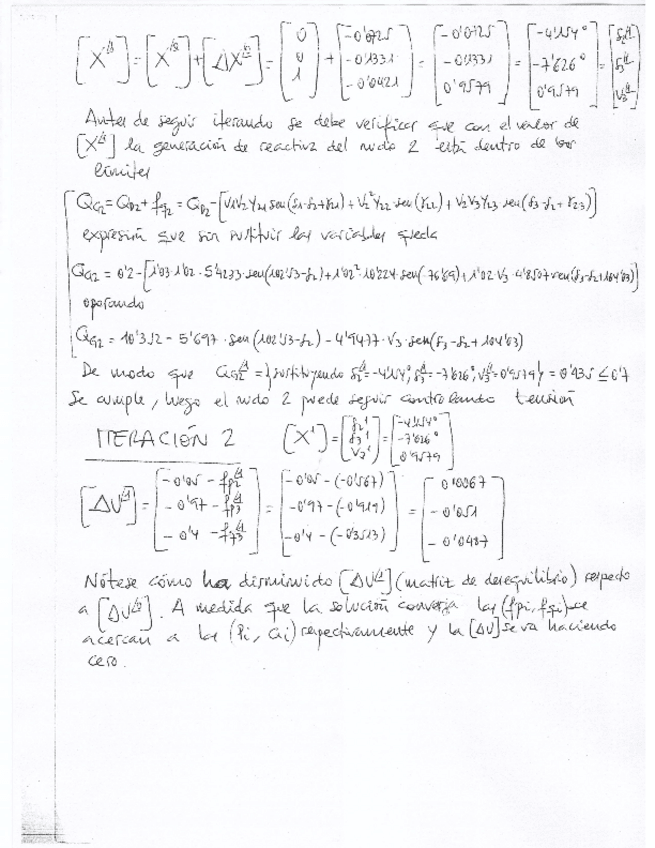 [X^(1)] = [X^(0)] + [ΔX^(0)] = [0; 0; 1] + [-0'0725; -0'1331; -0'0421] = [-0'0725; -0'1331; 0'9579] = [-4'154°; -7'626°; 0'9579] = [δ2^(1); δ3^(1); V3^(1)]
Antes de seguir iterando se debe verificar que con el valor de
[X^(1)] la generación de reactiva del nudo 2 está dentro de los
límites
QG2 = QD2 + fq2 = QD2 - [V1V2Y21 sen(δ1-δ2+γ21) + V2² Y22 sen(γ22) + V2V3Y23 sen(δ3-δ2+γ23)]
expresión que sin sustituir las variables queda
QG2 = 0'2 - [1'03·1'02·5'4233·sen(102'53-δ2) + 1'02²·10'224·sen(-76'69) + 1'02·V3·4'8507·sen(δ3-δ2+104'03)]
operando
QG2 = 10'352 - 5'697·sen(102'53-δ2) - 4'9477·V3·sen(δ3-δ2+104'03)
De modo que QG2^(1) = {sustituyendo δ2^(1)=-4'154°, δ3^(1)=-7'626°, V3^(1)=0'9579} = 0'435 ≤ 0'7
Se cumple, luego el nudo 2 puede seguir controlando tensión
ITERACIÓN 2 [X^1] = [δ2^1; δ3^1; V3^1] = [-4'154°; -7'626°; 0'9579]
[ΔU^(1)] = [-0'05 - fp2^(1); -0'97 - fp3^(1); -0'4 - fq3^(1)] = [-0'05-(-0'567); -0'97-(-0'919); -0'4-(-0'3513)] = [0'0067; -0'051; -0'0487]
Nótese cómo ha disminuido [ΔU^(1)] (matriz de desequilibrio) respecto
a [ΔU^(0)]. A medida que la solución converja las (fpi, fqi) se
acercan a las (Pi, Qi) respectivamente y la [ΔU] se va haciendo
cero.